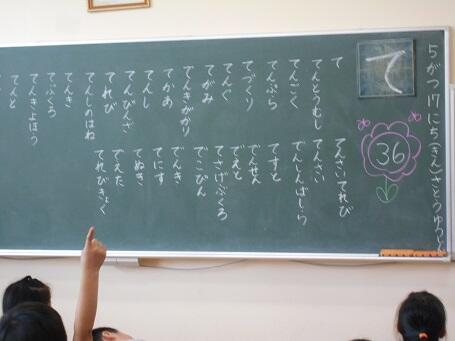 5がつ17にち(きん)さとうゆうと
て
36
て
てんとうむし
てんごく
てんぷら
てづくり
てんぐ
てがみ
てんきあがり
てかあ
てんし
てんびんざ
てれび
てんしのはね
てんき
てぶくろ
てんきよほう
てんと
てんさいてれび
てんさい
でんしんばしら
てすと
でんせん
でえと
てさげぶくろ
でこぴん
でんき
てにす
てぬき
てえた
てれびきょく